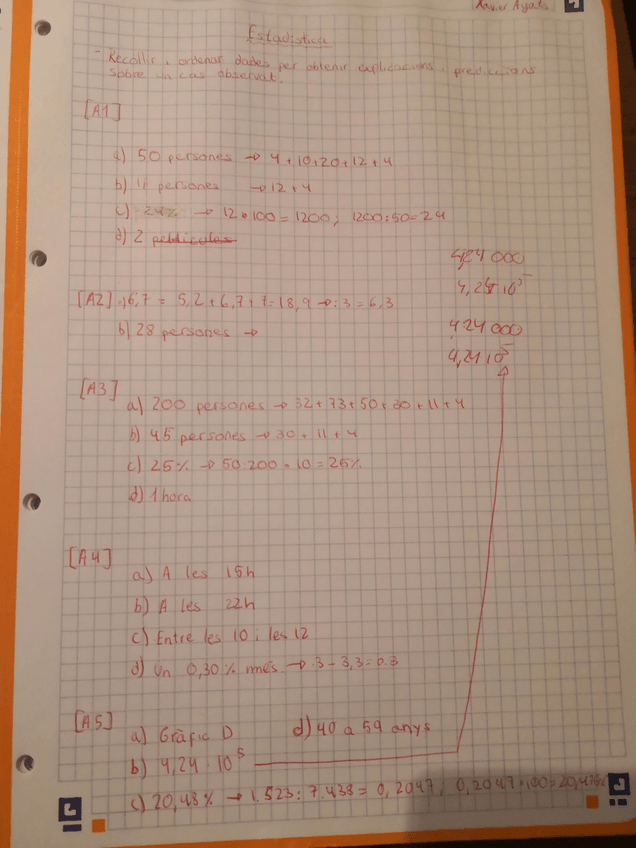 Xavier Ayats
Estadística
- Recollir i ordenar dades per obtenir explicacions i prediccions
sobre un cas observat.
[A1]
a) 50 persones → 4+10+20+12+4
b) 16 persones → 12+4
c) 24% → 12·100=1200; 1200:50=24
d) 2 pel·lícules
424 000
4,24 10⁵
[A2] 6,7 = 5,2+6,7+7=18,9 → :3=6,3
b) 28 persones →
424 000
4,24 10⁵
[A3]
a) 200 persones → 32+73+50+30+11+4
b) 45 persones → 30+11+4
c) 25% → 50:200·10=25%
d) 1 hora
[A4]
a) A les 15h
b) A les 22h
c) Entre les 10 i les 12
d) Un 0,30% més → 3-3,3=0.3
[A5]
a) Gràfic D d) 40 a 59 anys
b) 4,24·10⁵
c) 20,48% → 1.523:7.438=0,2047; 0,2047·100=20,47%